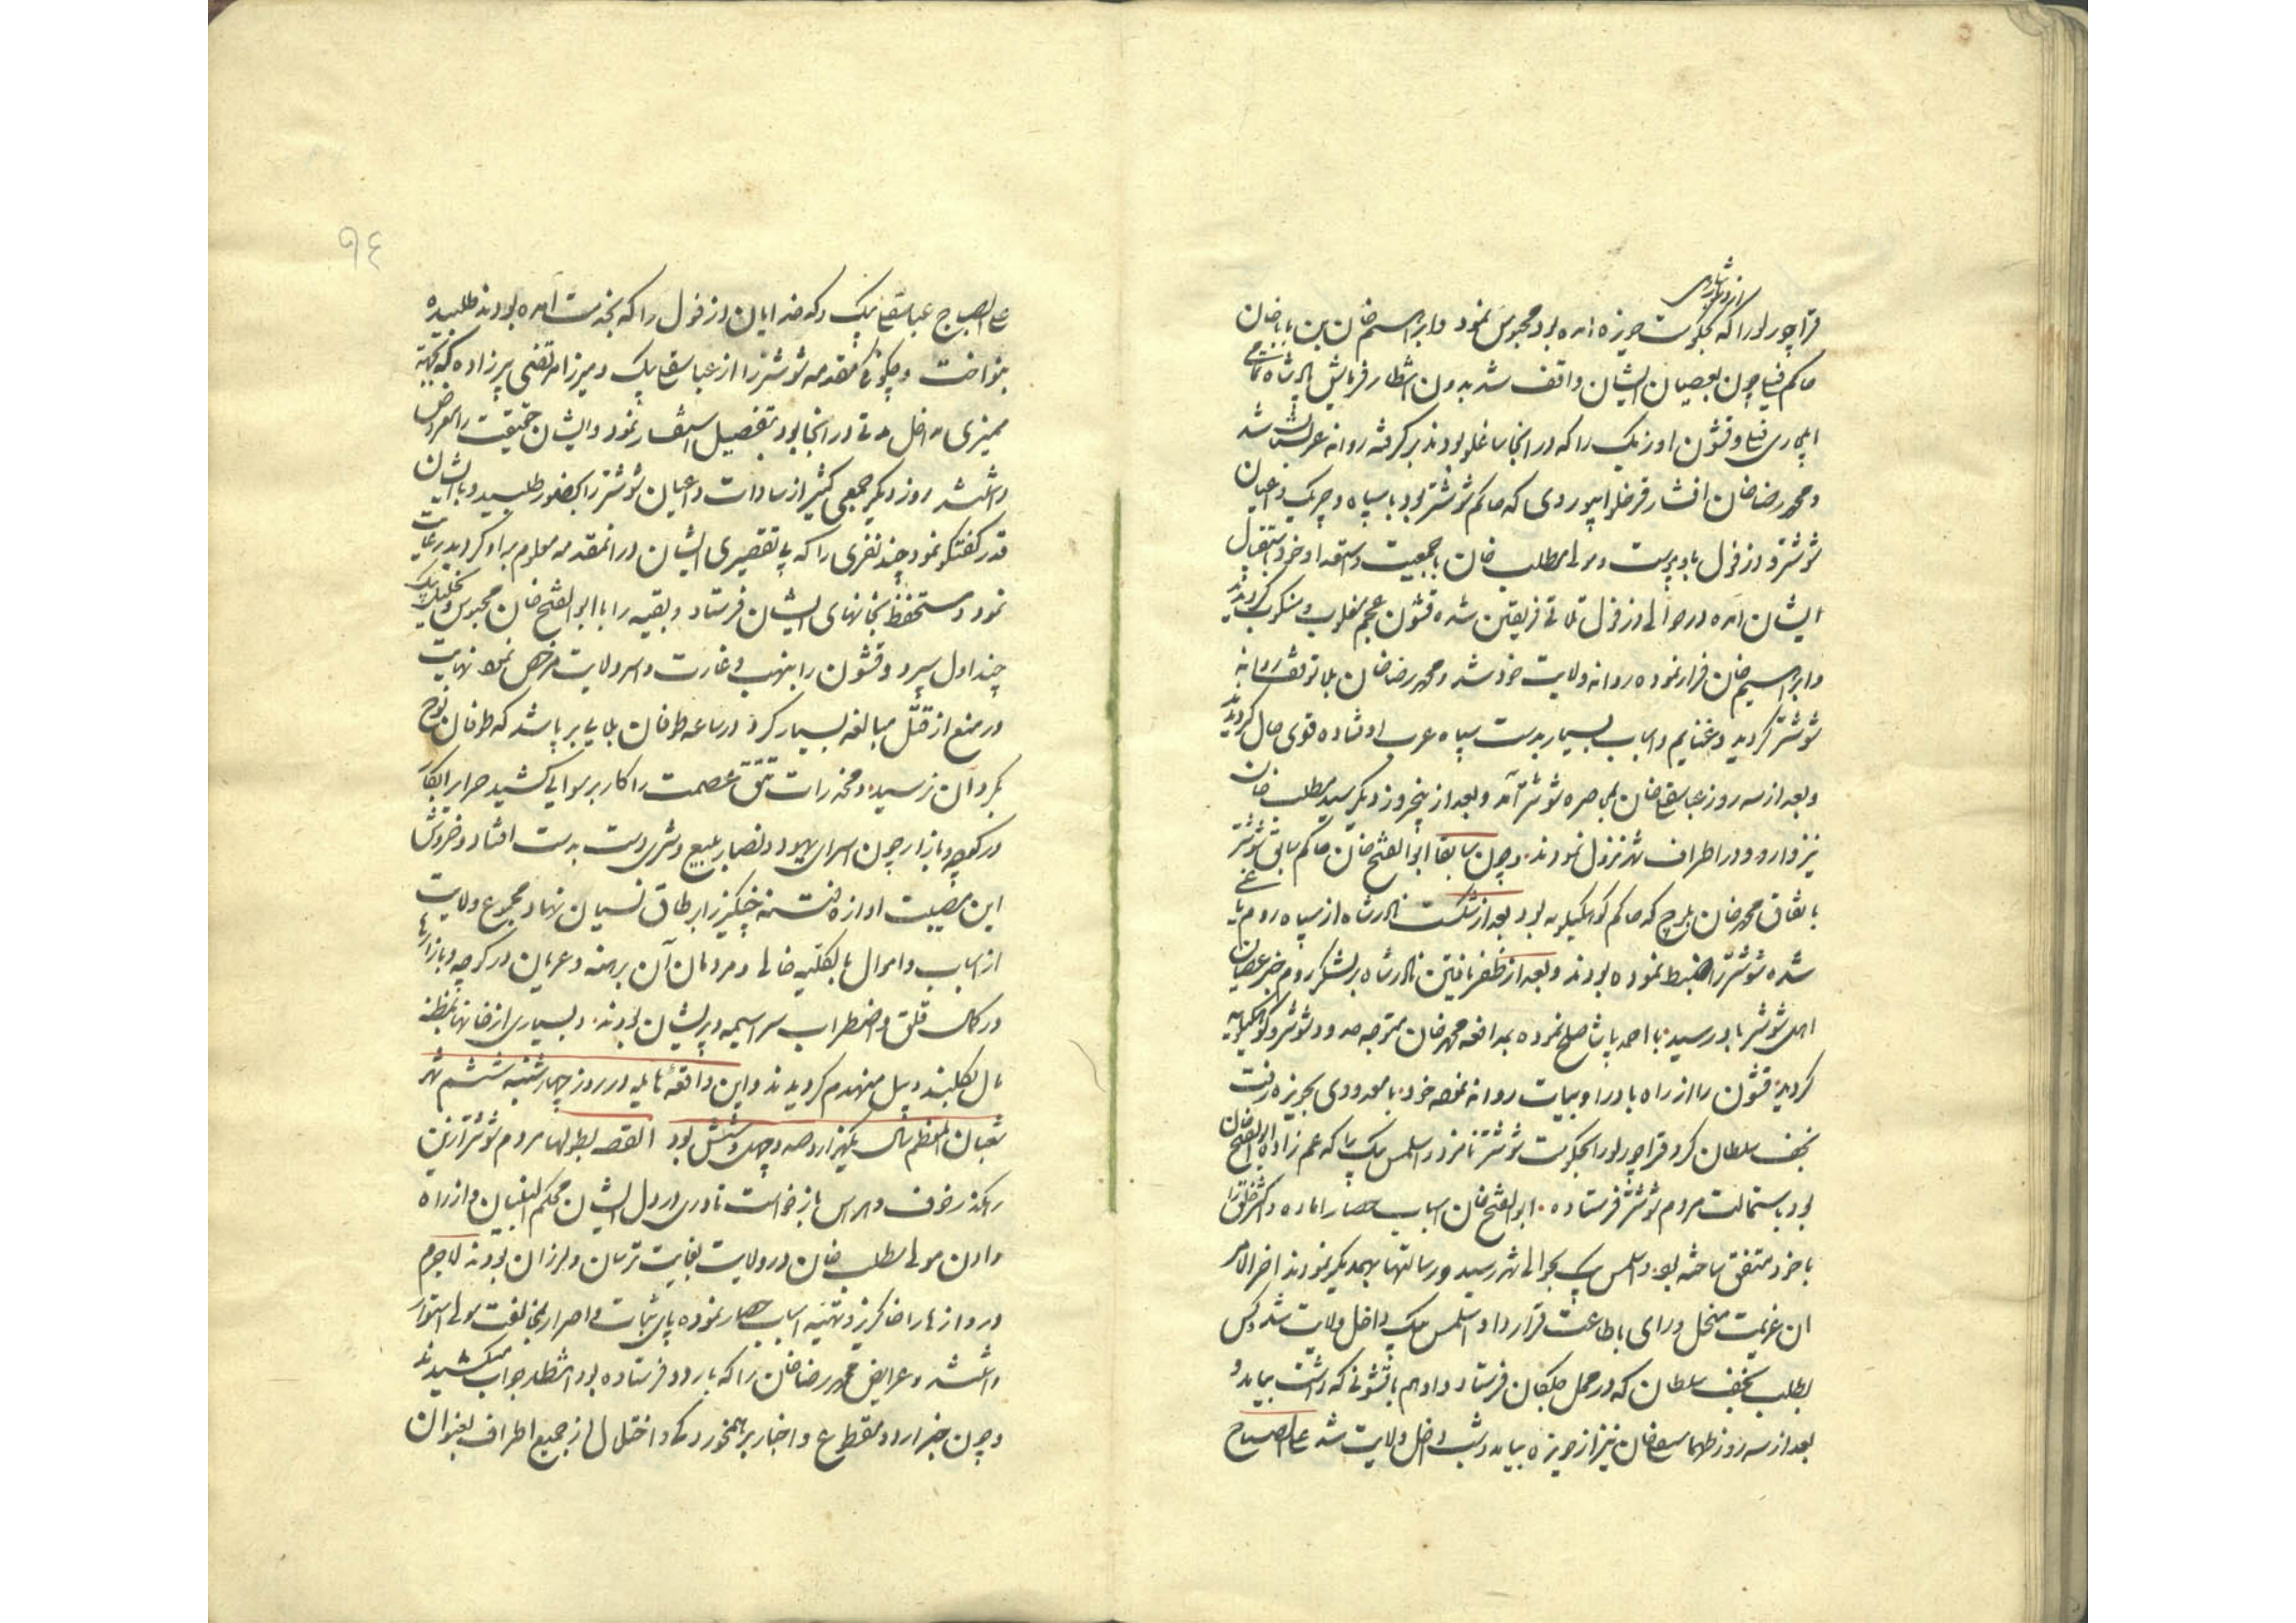 قراچورلو را که بحکومت حویزه آمده بود محبوس نمود و ابراهیم خان بن باباخان
حاکم فیلی چون بعصیان ایشان واقف شد بدون انتظار فرمایش نادرشاه تمامی
ایلجاری فیلی و قشون اوزبک را که در آنجا ساخلو بودند برگرفته روانه عربستان شد
و محمد رضا خان افشار قرخلو ابیوردی که حاکم شوشتر بود با سپاه و چریک و اعیان
شوشتر و دزفول باو پیوست و مولی مطلب خان با جمعیت و استعداد خود استقبال
ایشان آمده در حوالی دزفول تلاقی فریقین شده قشون عجم مغلوب و منکوب گردیدند
و ابراهیم خان فرار نموده روانه ولایت خود شد و محمد رضا خان بلا توقف روانه
شوشتر گردید و غنایم و اسباب بسیار بدست سپاه عرب اوفتاده قوی حال گردیدند
و بعد از سه روز عباسقلی خان بمحاصره شوشتر آمد و بعد از پنجروز دیگر سید مطلب خان
نیز وارد و در اطراف شهر نزول نمودند و چون سابقا ابوالفتح خان حاکم سابق شوشتر
باتفاق محمد خان بلوچ که حاکم کوهکیلویه بود بعد از شکست نادرشاه از سپاه روم یاغی
شده شوشتر را ضبط نموده بودند و بعد از ظفر یافتن نادرشاه بر لشکر روم خبر عصیان
اهل شوشتر باو رسید با احمد پاشا صلح نموده بمدافعه محمد خان متوجه حدود شوشتر و کوهکیلویه
گردید قشون را از راه بادرا و بیات روانه نموده خود با معدودی بحویزه رفت
نجف سلطان کرد قراچورلو را بحکومت شوشتر نامزد و اسلمس بیک را که عم زاده ابوالفتح خان
بود باستمالت مردم شوشتر فرستاده ابوالفتح خان اسباب حصار آماده و اکثر خلق را
با خود متفق ساخته بود و اسلمس بیک بحوالی شهر رسید و رسالتها بهمدیگر نمودند آخر الامر
آن عزیمت منحل و رای باطاعت قرار داد و اسلمس بیک داخل ولایت شد و کس
بطلب نجف سلطان که در محل جلکان فرستاد و او هم با قشونی که داشت بیامد و
بعد از سه روز طهماسقلی خان نیز از حویزه بیامد و شب داخل ولایت شد علی الصباح
علی الصباح عباسقلی بیک و کدخدایان دزفول را که بخدمت آمده بودند طلبیده
بنواخت و چگونگی مقدمه شوشتر را از عباسقلی بیک و میرزا مرتضی پیرزاده که بجهة
ممیزی مداخل مدتی در آنجا بود بتفصیل استفسار نمود و ایشان حقیقت را معروض
داشتند روز دیگر جمعی کثیر از سادات و اعیان شوشتر را بحضور طلبید و با ایشان
قدر گفتگو نمود چند نفری را که بی تقصیری ایشان در آنمقدمه معلوم بر او گردید رعایت
نمود و مستحفظ بخانهای ایشان فرستاد و بقیه را با ابوالفتح خان محبوس و بخلیل بیک
چنداول سپرد و قشون را بنهب و غارت و اسر ولایت مرخص نمود نهایت
در منع از قتل مبالغه بسیار کرد در ساعه طوفان بلایی برپا شد که طوفان نوح
بگرد آن نرسید و مخدرات تتق عصمت را کار برسوایی کشید حرایر ابکار
در کوچه و بازار چون اسرای یهود و نصارا ببیع و شری دست بدست افتاد و خروش
این مصیبت آوازه فتنه چنگیز را بر طاق نسیان نهاد مجموع ولایت
از اسباب و اموال بالکلیه خالی و مردمان آن برهنه و عریان در کوچه و بازارها
در کمال قلق و اضطراب سراسیمه و پریشان بودند و بسیاری از خانها بمظنه
مال بکلند و بیل منهدم گردیدند و این واقعه هایله در روز چهارشنبه ششم شهر
شعبان المعظم سال یکهزار و صد و چهل و شش بود القصه بطولها مردم شوشتر ازین
رهگذر خوف و هراس بازخواست نادری در دل ایشان محکم البنیان و از راه
دادن مولی مطلب خان در ولایت بغایت ترسان و لرزان بودند لاجرم
دروازها را خاکریز و تهیه اسباب حصار نموده پای ثبات و اصرار بمخالفت مولی استوار
داشتند و عرایض محمد رضا خان را که باردو فرستاده بود انتظار جواب میکشیدند
و چون خبر اردو مقطوع و اخبار برهمخوردگی و اختلال از جمیع اطراف بعنوان
٩٤